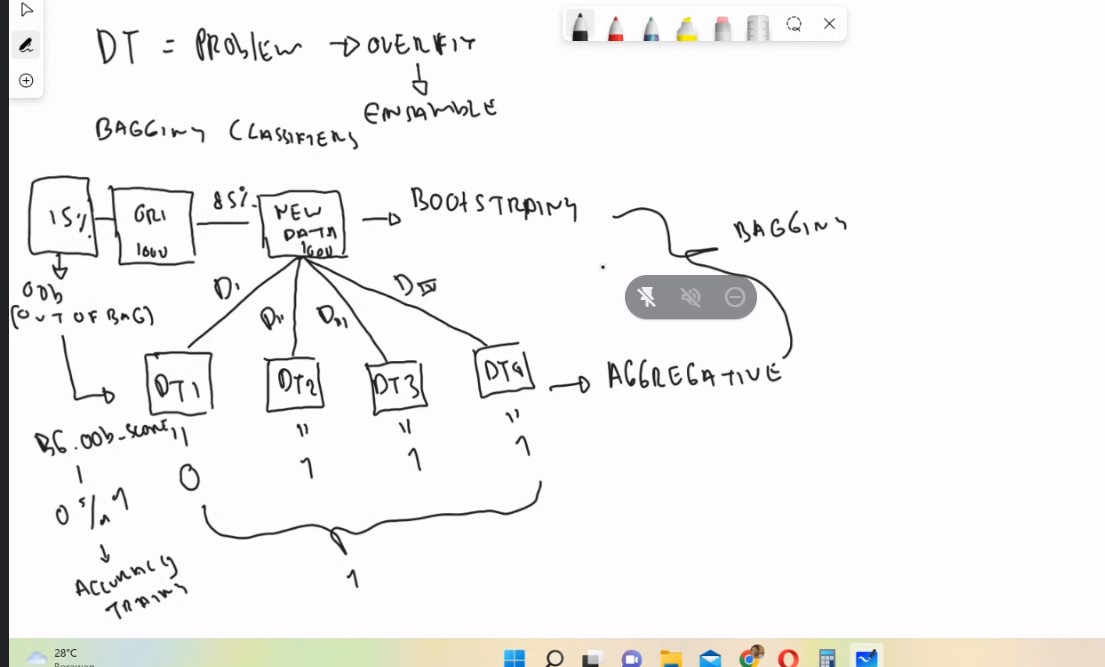 DT = PROBlEM → OVERFIT
ENSAMBLE
BAGGING CLASSIFIERS
15%
ORI
1000
85%
NEW
DATA
1000
→ BOOTSTRAPING
BAGGING
OOb
(OUT OF BAG)
D1
DII
DIII
DIV
DT1
DT2
DT3
DT4
→ AGGREGATIVE
BG.OOb_SCORE
0
1
1
1
ACCURACY
TRAINING
1
28°C
Berawan